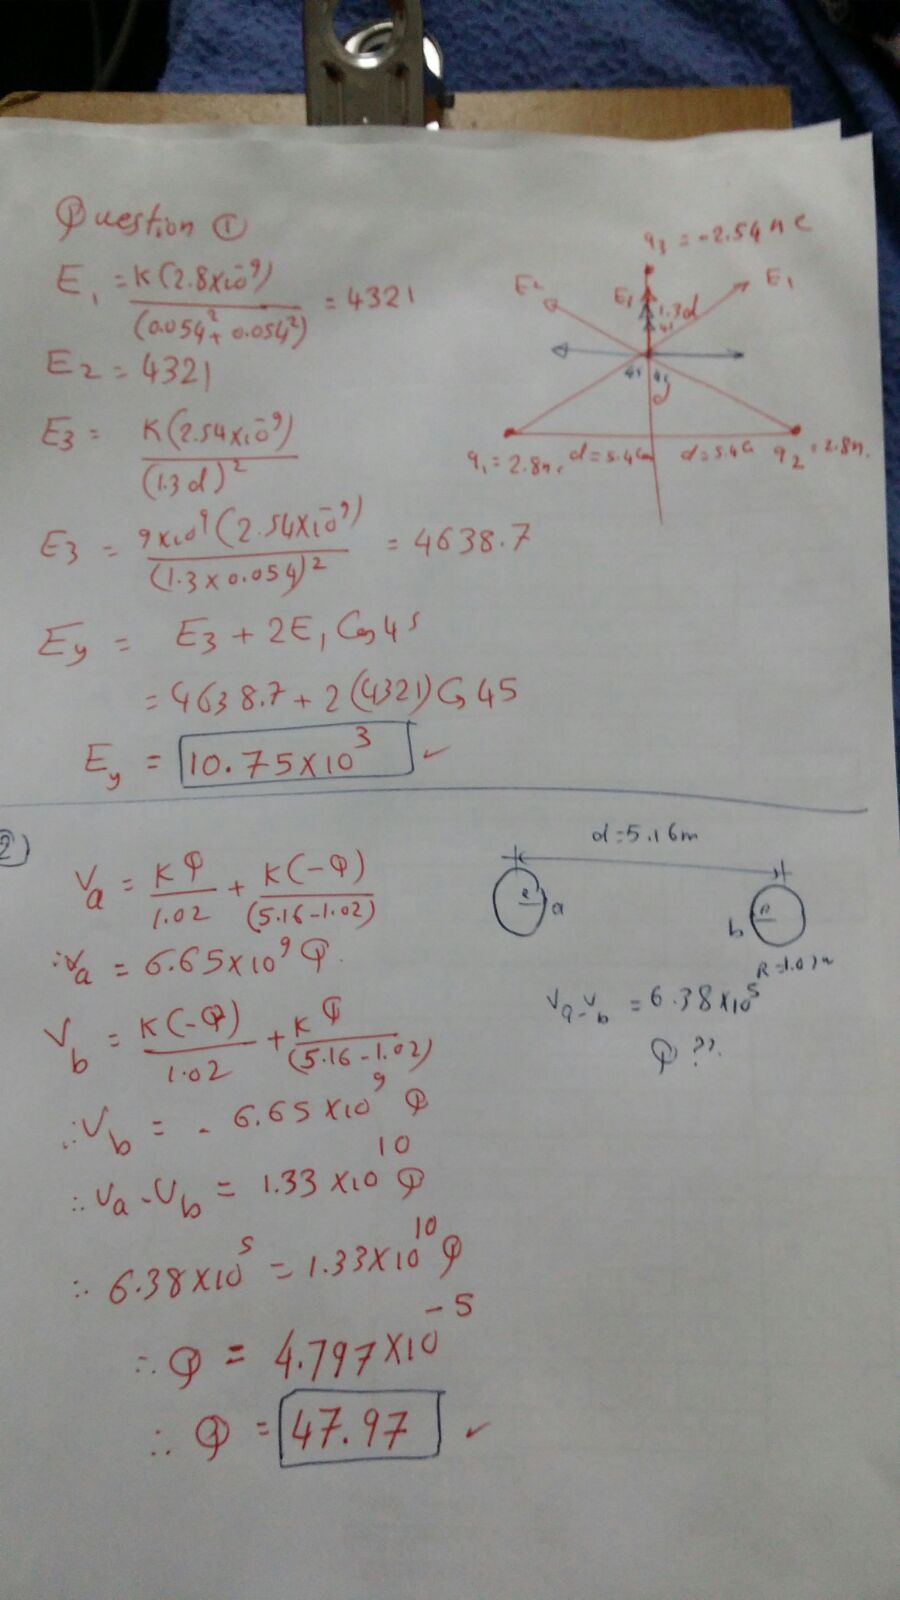 Question ①
E₁ = K(2.8x10⁻⁹) / (0.054² + 0.054²) = 4321
E2 = 4321
E3 = K(2.54x10⁻⁹) / (1.3d)²
E3 = 9x10⁹(2.54x10⁻⁹) / (1.3x0.054)² = 4638.7
Ey = E3 + 2E₁ Cos 45
= 4638.7 + 2(4321) Cos 45
Ey = 10.75x10³ ✓
q3 = -2.54 n C
E2
E₁
1.3d
45
45 45
d
q₁ = 2.8n.c
d = 5.4Cm
d = 5.4Cm
q2 = 2.8n.
2)
Va = KQ / 1.02 + K(-Q) / (5.16-1.02)
∴ Va = 6.65x10⁹ Q.
Vb = K(-Q) / 1.02 + KQ / (5.16-1.02)
∴ Vb = - 6.65x10⁹ Q
∴ Va - Vb = 1.33x10¹⁰ Q
∴ 6.38x10⁵ = 1.33x10¹⁰ Q
∴ Q = 4.797x10⁻⁵
∴ Q = 47.97 ✓
d=5.16m
R a
b R
R=1.02m
Va-Vb = 6.38x10⁵
Q ??